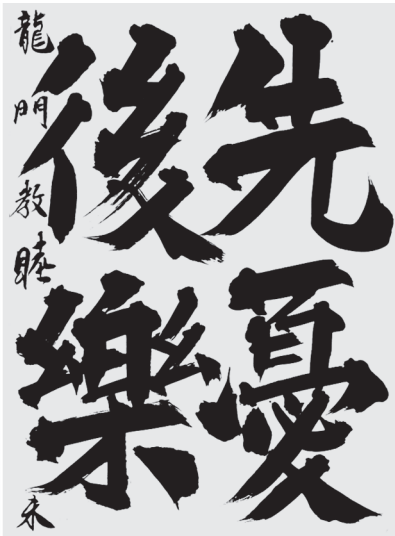 先憂
後樂
龍門教睦未